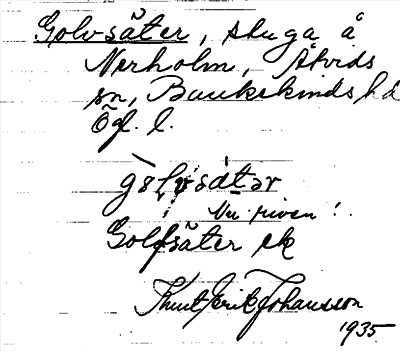 Golvsäter, stuga å
Nerholm, Åtvids
sn, Bankekinds hd
Ög. l.
gɔlvsätər
Nu riven!
Golfsäter ek
Knut Erik Johansson
1935